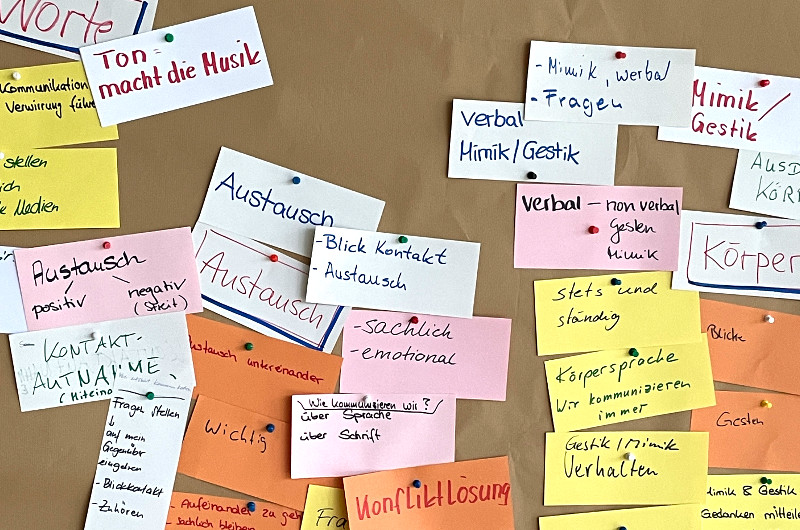 Worte
Ton =
macht die Musik
Kommunikation
Verwirrung führ
stellen
ich
Medien
Austausch
positiv
negativ
(Streit)
- KONTAKT-
AUFNAHME
Fragen stellen
↓
auf mein
Gegenüber
eingehen
- Blickkontakt
- Zuhören
Austausch
Austausch
- Blick Kontakt
- Austausch
- sachlich
- emotional
Austausch untereinander
Wichtig
Wie kommunizieren wir?
über Sprache
über Schrift
- Aufeinander zu ge
sachlich bleiben
Fra
Konfliktlösung
- Mimik, werbal
- Fragen
Verbal
Mimik/Gestik
Mimik/
Gestik
AUSD
KÖR
Verbal – non verbal
Gesten
Mimik
Körper
Stets und
ständig
Körpersprache
Wir kommunizieren
immer
Gestik/Mimik
Verhalten
Blicke
Gesten
Mimik & Gestik
Gedanken mitteile